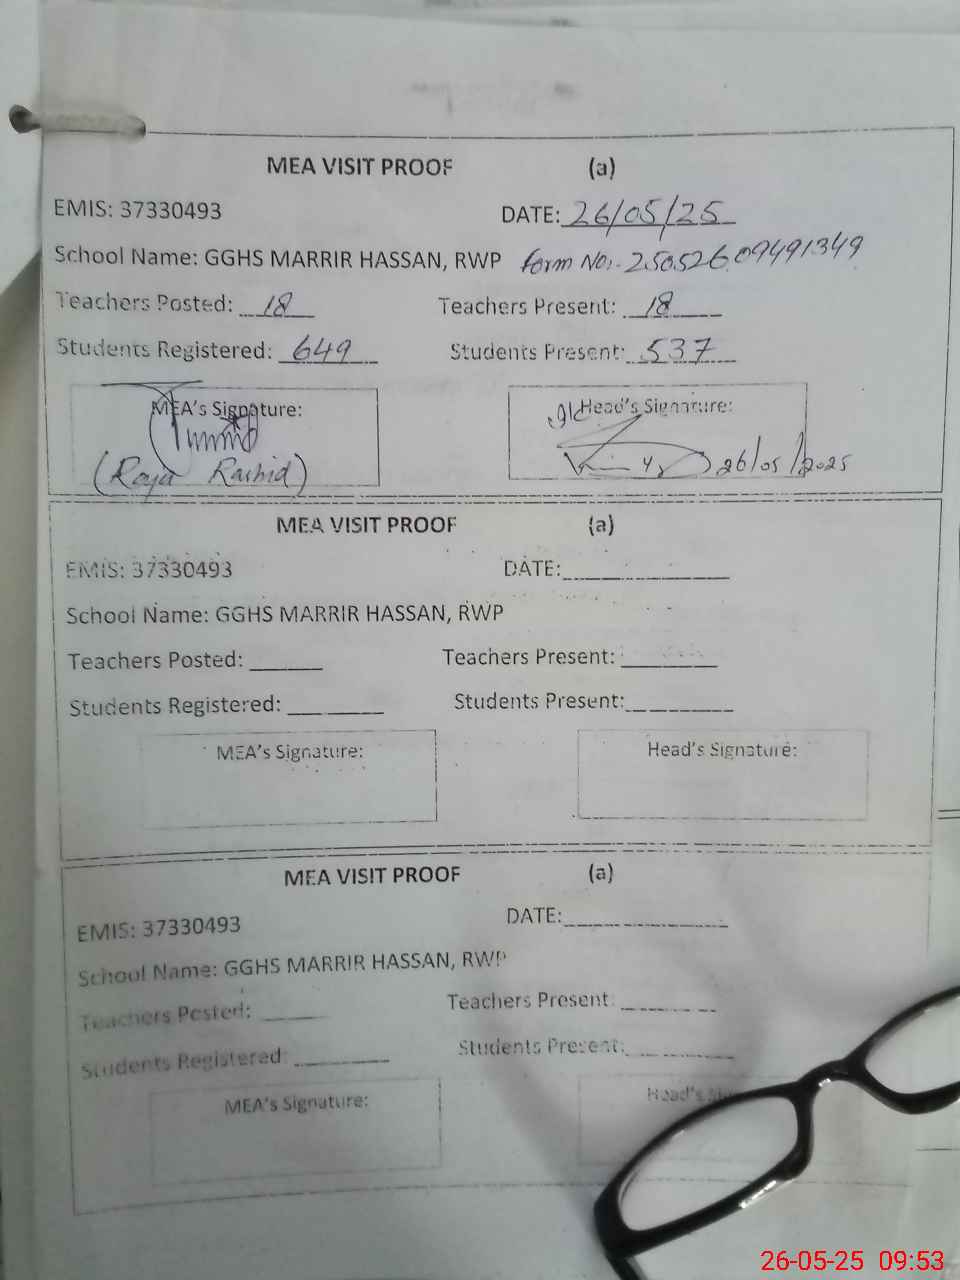 MEA VISIT PROOF (a)
EMIS: 37330493 DATE: 26/05/25
School Name: GGHS MARRIR HASSAN, RWP Form No:- 25052609491349
Teachers Posted: 18 Teachers Present: 18
Students Registered: 649 Students Present: 537
MEA's Signature: Head's Signature:
(Raja Rashid) 26/05/2025
MEA VISIT PROOF (a)
EMIS: 37330493 DATE:
School Name: GGHS MARRIR HASSAN, RWP
Teachers Posted: Teachers Present:
Students Registered: Students Present:
MEA's Signature: Head's Signature:
MEA VISIT PROOF (a)
EMIS: 37330493 DATE:
School Name: GGHS MARRIR HASSAN, RWP
Teachers Posted: Teachers Present:
Students Registered: Students Present:
MEA's Signature: Head's
26-05-25 09:53